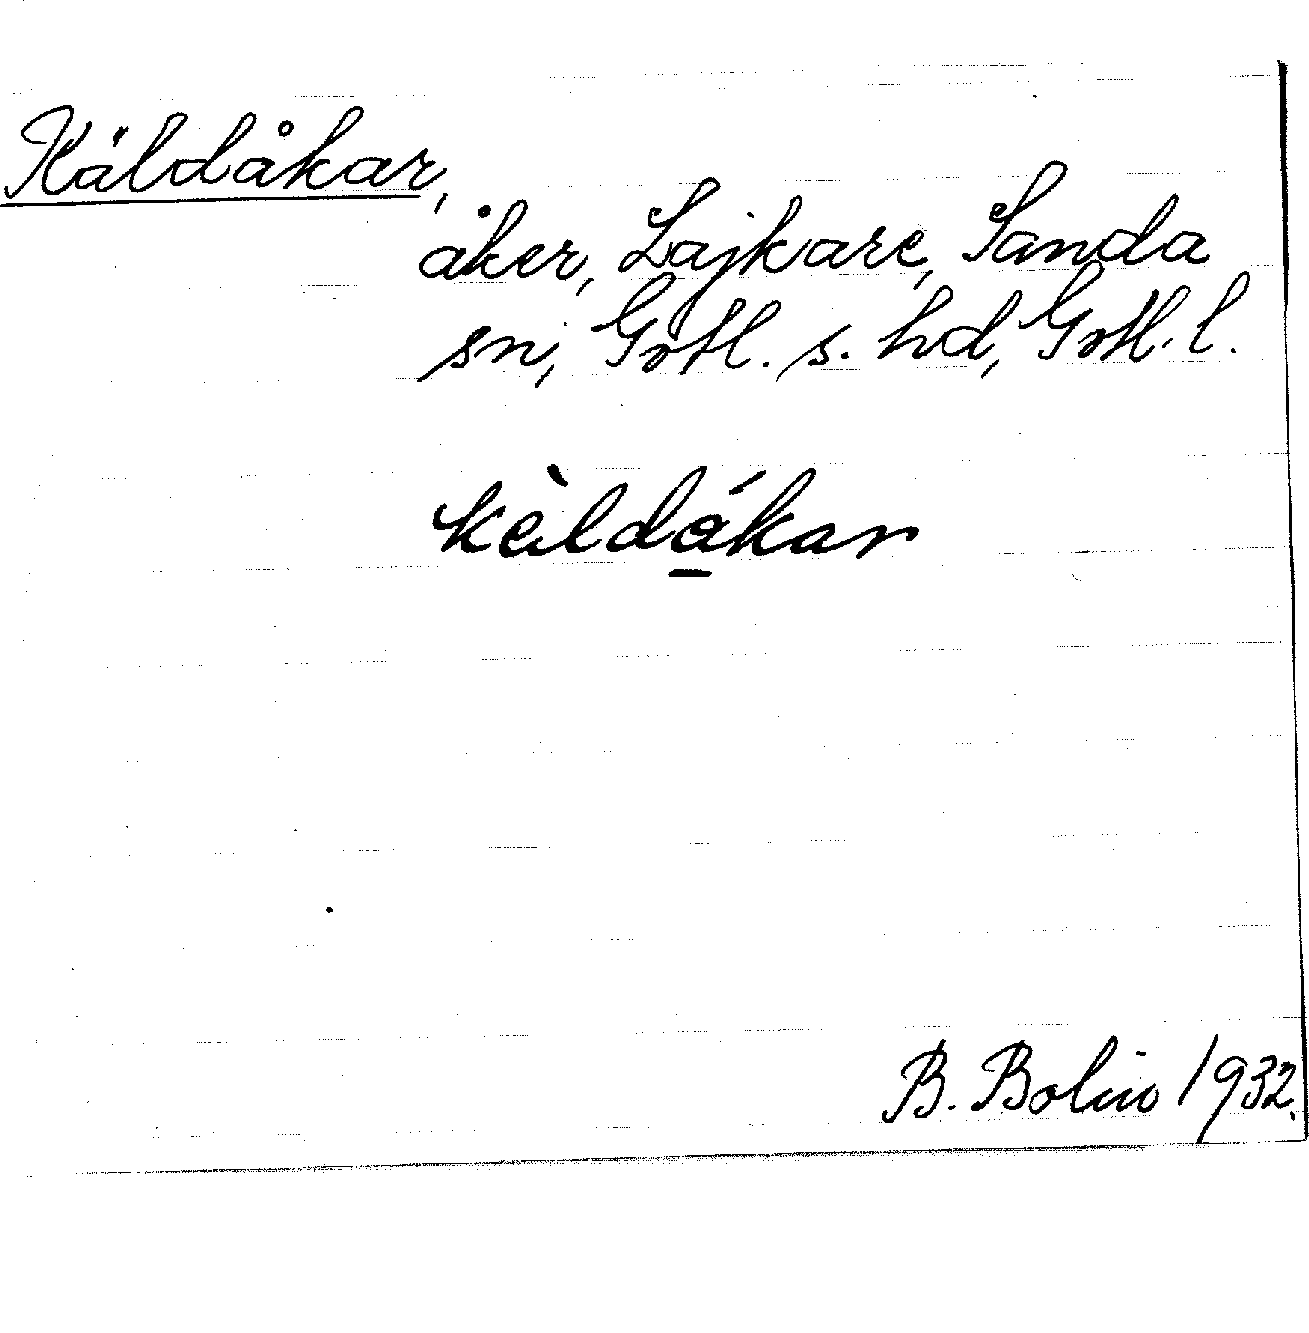 Käldåkar,
åker, Lajkare, Sanda
sn, Gotl. s. hd, Gotl. l.
kèldákar
B. Bolin 1932.